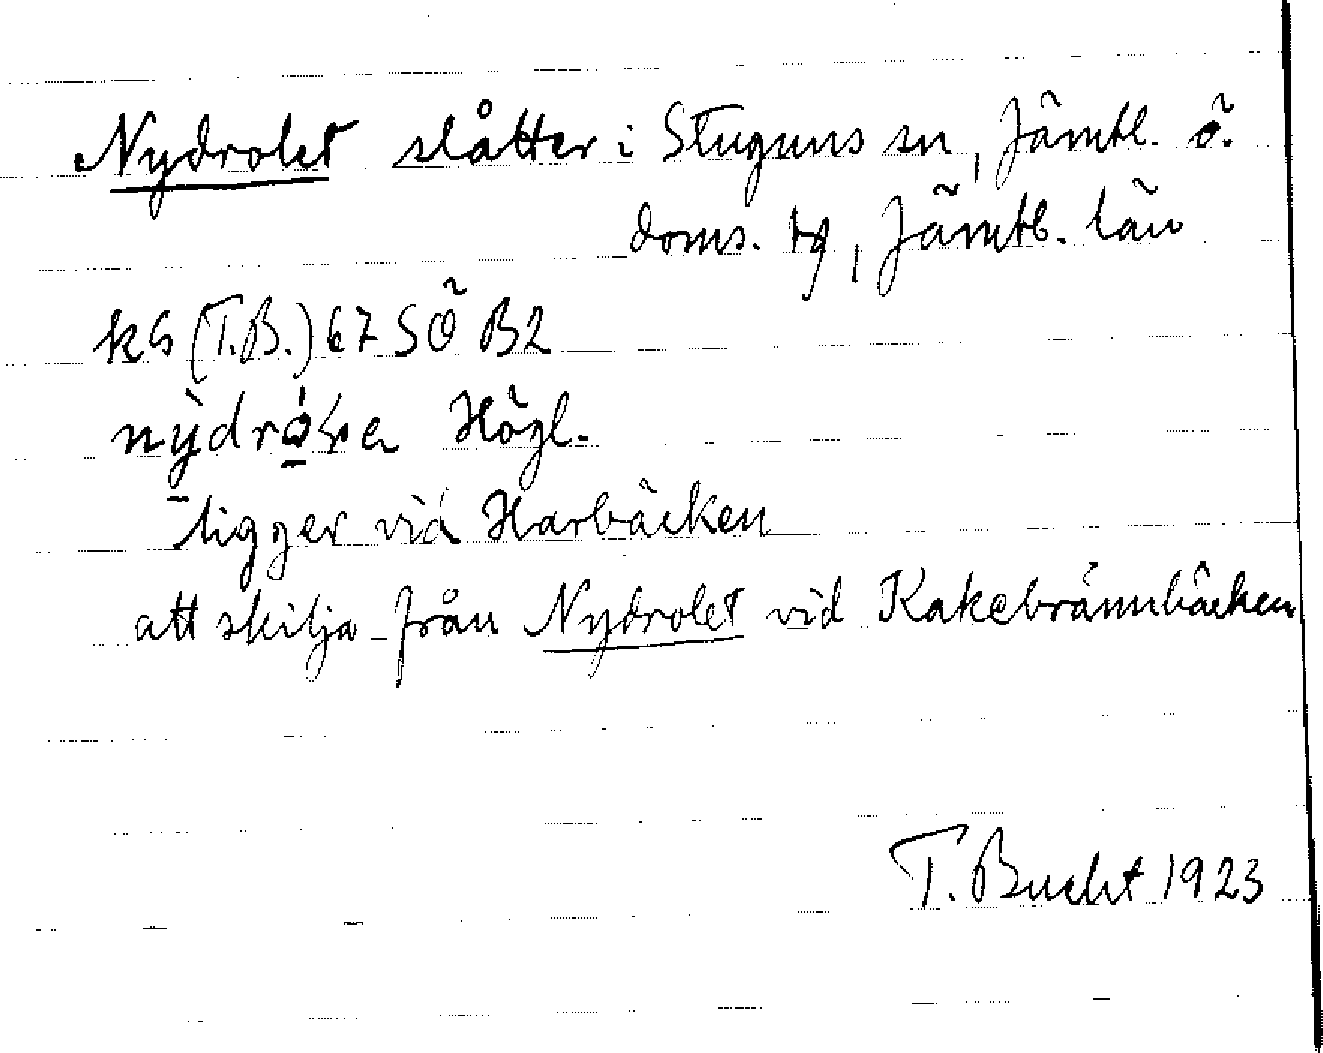 Nydrolet slåtter i Stuguns sn, Jämtl. ö.
doms. tg, Jämtl. län
kG (T.B.) 67 SÖ B2
Högl.
ligger vid Harbäcken
att skilja från Nydrolet vid Kakebrännbäcken
T. Bucht 1923